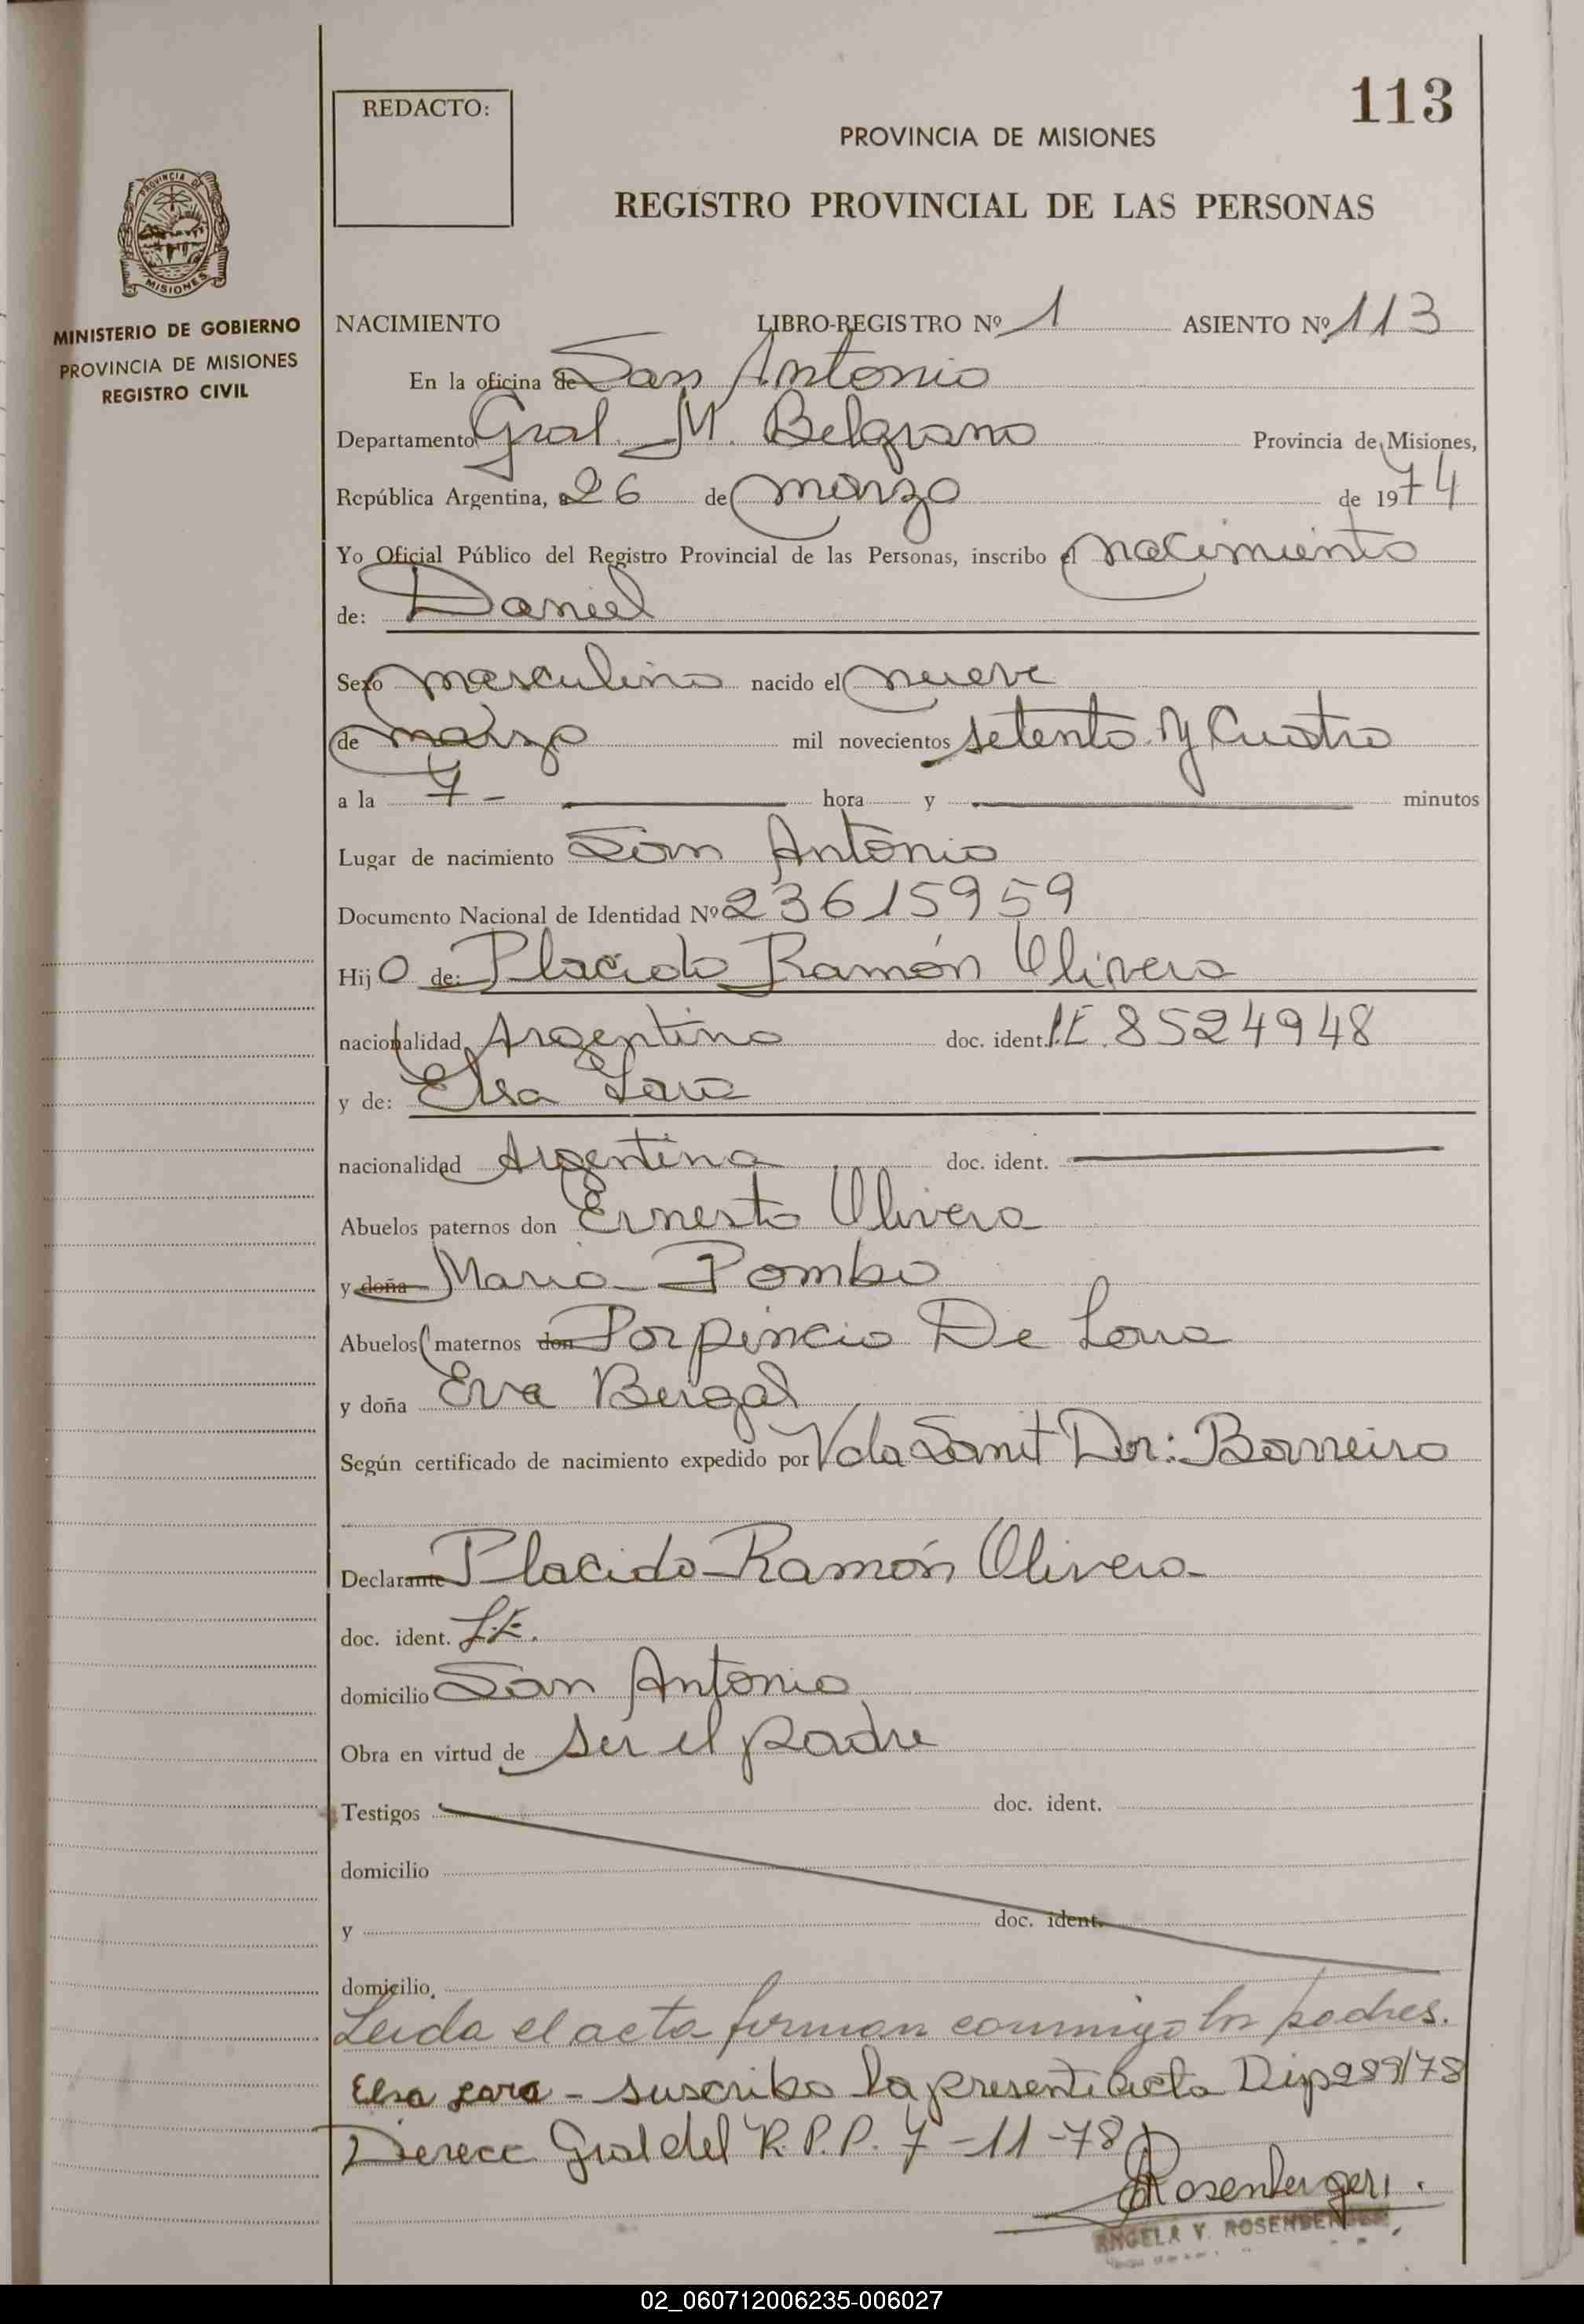 113
REDACTO:
PROVINCIA DE MISIONES
REGISTRO PROVINCIAL DE LAS PERSONAS
PROVINCIA DE
MISIONES
MINISTERIO DE GOBIERNO
PROVINCIA DE MISIONES
REGISTRO CIVIL
NACIMIENTO LIBRO-REGISTRO Nº 1 ASIENTO Nº 113
En la oficina de San Antonio
Departamento Gral. M. Belgrano Provincia de Misiones,
República Argentina, a 26 de marzo de 1974
Yo Oficial Público del Registro Provincial de las Personas, inscribo el nacimiento
de: Daniel
Sexo masculino nacido el nueve
de marzo mil novecientos setenta y Cuatro
a la 7 - hora y minutos
Lugar de nacimiento San Antonio
Documento Nacional de Identidad Nº 23615959
Hij o de: Placido Ramón Olivera
nacionalidad Argentino doc. ident. L.E. 8524948
y de: Elsa Lara
nacionalidad Argentina doc. ident.
Abuelos paternos don Ernesto Olivera
y doña Maria Pombo
Abuelos maternos don Porpincio De Lara
y doña Eva Bergal
Según certificado de nacimiento expedido por Sanit Dr: Barreiro
Declarante Placido Ramón Olivera
doc. ident. L.E.
domicilio San Antonio
Obra en virtud de ser el padre
Testigos doc. ident.
domicilio
y doc. ident.
domicilio
Leida el acta firman conmigo los padres.
Elsa Lara - suscribo la presente acta Disp 289/78
Direcc Gral del R.P.P. 7-11-78
Rosenberger
ANGELA V. ROSENBERGER
02_060712006235-006027